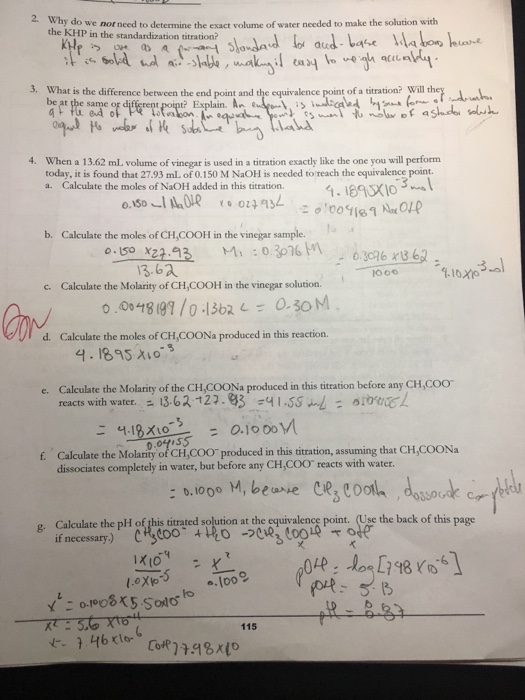 2. Why do we not need to determine the exact volume of water needed to make the solution with
the KHP in the standardization titration?
KHp is use as a primary standard for acid-base titrations because
it is solid and air-stable, making it easy to weigh accurately.
3. What is the difference between the end point and the equivalence point of a titration? Will they
be at the same or different point? Explain. An endpoint, is indicated by some form of indicator
at the end of the titration. An equivalence point is when the moles of a standard solution
equal the moles of the substance being titrated
4. When a 13.62 mL volume of vinegar is used in a titration exactly like the one you will perform
today, it is found that 27.93 mL of 0.150 M NaOH is needed to reach the equivalence point.
a. Calculate the moles of NaOH added in this titration. 4.1895X10⁻³ mol
0.150 NaOH x0.02793L = 0.004189 NaOH
b. Calculate the moles of CH₃COOH in the vinegar sample.
0.150 x27.93 M₁ = 0.3076 M = 0.3076 x13.62 = 4.10x10⁻³mol
13.62 1000
c. Calculate the Molarity of CH₃COOH in the vinegar solution.
0.0048189/0.1362 L = 0.30M
d. Calculate the moles of CH₃COONa produced in this reaction.
4.1895 x10⁻³
e. Calculate the Molarity of the CH₃COONa produced in this titration before any CH₃COO⁻
reacts with water. = 13.62+27.93 =41.55 mL = 0.04155L
= 4.18x10⁻³ = 0.1000M
0.04155
f. Calculate the Molarity of CH₃COO⁻ produced in this titration, assuming that CH₃COONa
dissociates completely in water, but before any CH₃COO⁻ reacts with water.
= 0.1000 M, because CH₃COONa, completely
g. Calculate the pH of this titrated solution at the equivalence point. (Use the back of this page
if necessary.) CH₃COO⁻ + H₂O -> CH₃COOH + OH⁻
x x
= x²
1.0x10⁻⁵ 0.1008
pOH = -log[7.98 x10⁻⁶]
pOH = 5.13
x² = 0.1008x5.50x10⁻¹⁰
pH = 8.87
x² = 5.6 x10⁻¹¹
115
x = 7.46x10⁻⁶